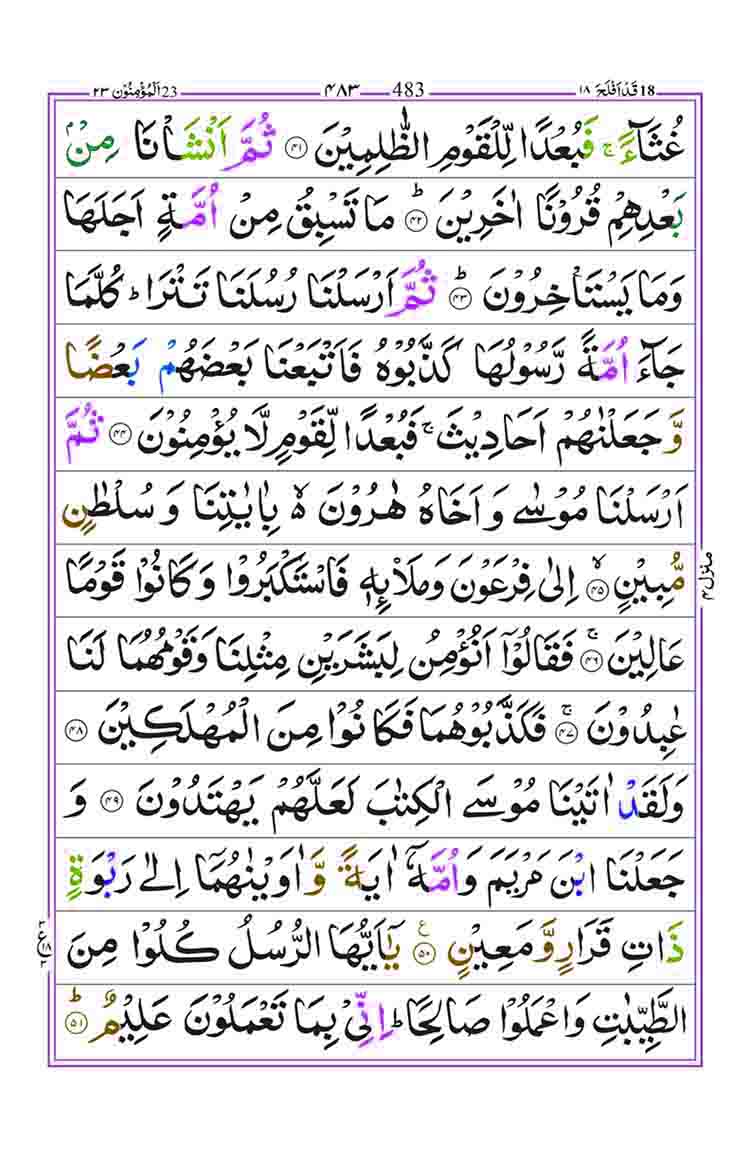 18 قَدْ اَفْلَحَ ١٨
483 ٤٨٣
23 اَلْمُؤْمِنُوْن ٢٣
غُثَآءً ۚ فَبُعْدًا لِّلْقَوْمِ الظّٰلِمِيْنَ ﴿٤١﴾ ثُمَّ اَنْشَاْنَا مِنْۢ
بَعْدِهِمْ قُرُوْنًا اٰخَرِيْنَ ؕ﴿٤٢﴾ مَا تَسْبِقُ مِنْ اُمَّةٍ اَجَلَهَا
وَمَا يَسْتَاْخِرُوْنَ ؕ﴿٤٣﴾ ثُمَّ اَرْسَلْنَا رُسُلَنَا تَتْرَا ؕ كُلَّمَا
جَآءَ اُمَّةً رَّسُوْلُهَا كَذَّبُوْهُ فَاَتْبَعْنَا بَعْضَهُمْ بَعْضًا
وَّ جَعَلْنٰهُمْ اَحَادِيْثَ ۚ فَبُعْدًا لِّقَوْمٍ لَّا يُؤْمِنُوْنَ ﴿٤٤﴾ ثُمَّ
اَرْسَلْنَا مُوْسٰى وَ اَخَاهُ هٰرُوْنَ ۙ۬ بِاٰيٰتِنَا وَ سُلْطٰنٍ
مُّبِيْنٍ ۙ﴿٤٥﴾ اِلٰى فِرْعَوْنَ وَمَلَا۠ئِهٖ فَاسْتَكْبَرُوْا وَ كَانُوْا قَوْمًا
عَالِيْنَ ۚ﴿٤٦﴾ فَقَالُوْٓا اَنُؤْمِنُ لِبَشَرَيْنِ مِثْلِنَا وَقَوْمُهُمَا لَنَا
عٰبِدُوْنَ ۚ﴿٤٧﴾ فَكَذَّبُوْهُمَا فَكَانُوْا مِنَ الْمُهْلَكِيْنَ ﴿٤٨﴾
وَلَقَدْ اٰتَيْنَا مُوْسَى الْكِتٰبَ لَعَلَّهُمْ يَهْتَدُوْنَ ﴿٤٩﴾ وَ
جَعَلْنَا ابْنَ مَرْيَمَ وَ اُمَّهٗٓ اٰيَةً وَّ اٰوَيْنٰهُمَآ اِلٰى رَبْوَةٍ
ذَاتِ قَرَارٍ وَّ مَعِيْنٍ ﴿٥٠﴾ۧ يٰٓاَيُّهَا الرُّسُلُ كُلُوْا مِنَ
الطَّيِّبٰتِ وَاعْمَلُوْا صَالِحًا ؕ اِنِّيْ بِمَا تَعْمَلُوْنَ عَلِيْمٌ ؕ﴿٥١﴾
منزل ٤
ع ١٨